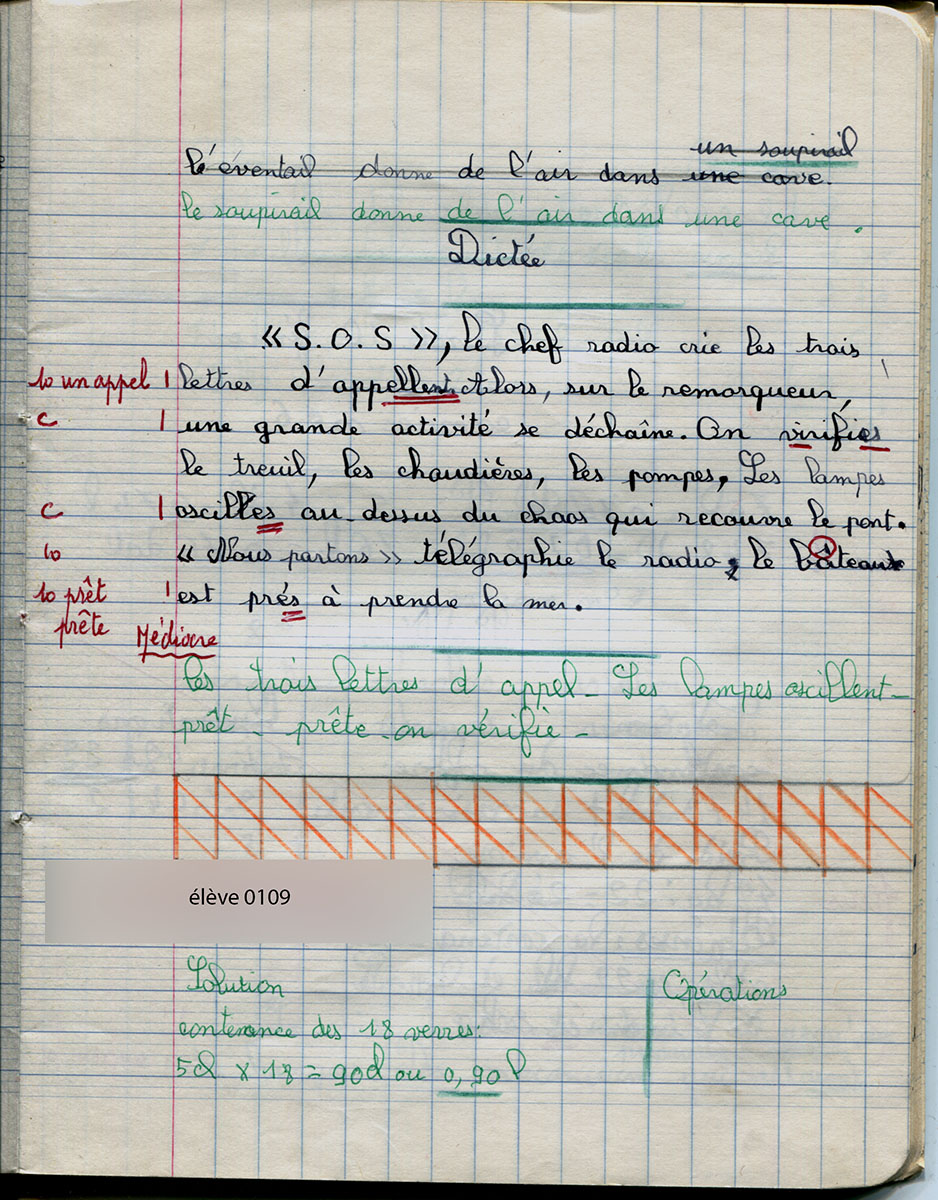 un soupirail
l'éventail donne de l'air dans une cave.
le soupirail donne de l'air dans une cave.
Dictée
« S.O.S », le chef radio crie les trois
10 un appel 1 lettres d'appellent. Alors, sur le remorqueur,
C 1 une grande activité se déchaîne. On virifies
le treuil, les chaudières, les pompes, Les lampes
C 1 oscilles au-dessus du chaos qui recouvre le pont.
10 « Nous partons » télégraphie le radio, le bâteau
10 prêt 1 est prés à prendre la mer.
prête Médiocre
les trois lettres d'appel - Les lampes oscillent -
prêt - prête - on vérifie -
élève 0109
Solution Opérations
contenance des 18 verres:
5cl x 18 = 90cl ou 0,90 l